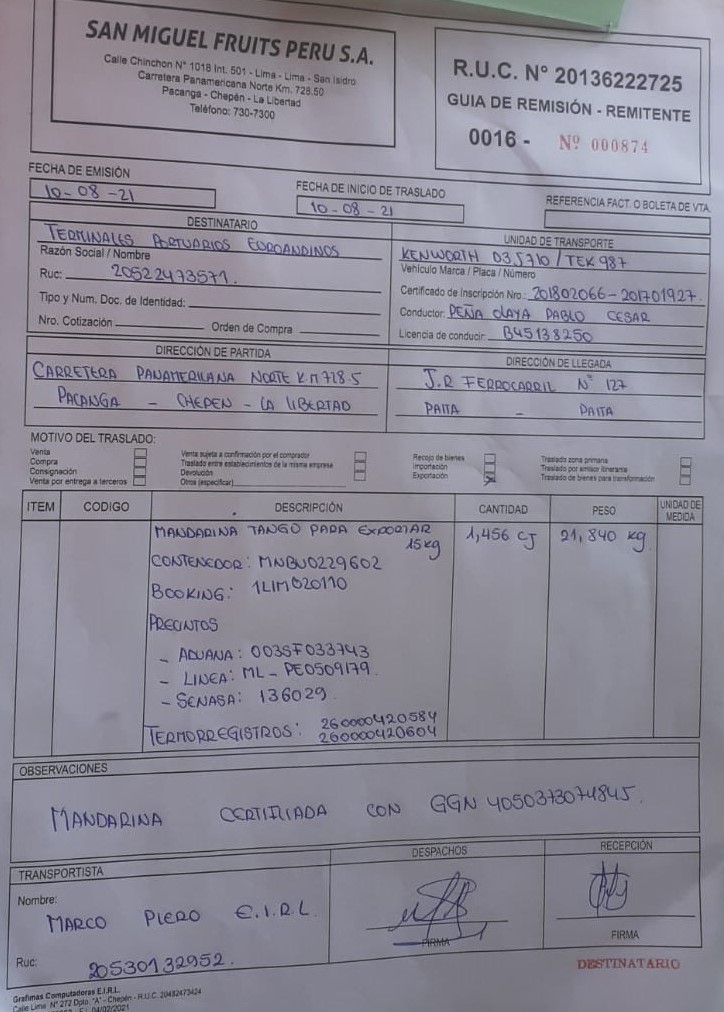 SAN MIGUEL FRUITS PERU S.A.
Calle Chinchon N° 1018 Int. 501 - Lima - Lima - San Isidro
Carretera Panamericana Norte Km. 728.50
Pacanga - Chepén - La Libertad
Teléfono: 730-7300
R.U.C. N° 20136222725
GUIA DE REMISIÓN - REMITENTE
0016 - Nº 000874
FECHA DE EMISIÓN
10-08-21
FECHA DE INICIO DE TRASLADO
10-08-21
REFERENCIA FACT. O BOLETA DE VTA.
DESTINATARIO
TERMINALES PORTUARIOS EUROANDINOS
Razón Social / Nombre
Ruc: 20522473571.
Tipo y Num. Doc. de Identidad:
Nro. Cotización Orden de Compra
UNIDAD DE TRANSPORTE
KENWORTH D3J710 / TEK987
Vehículo Marca / Placa / Número
Certificado de Inscripción Nro.: 201802066-201701927.
Conductor: PEÑA OLAYA PABLO CESAR
Licencia de conducir: B45138250
DIRECCIÓN DE PARTIDA
CARRETERA PANAMERICANA NORTE KM728.5
PACANGA - CHEPEN - LA LIBERTAD
DIRECCIÓN DE LLEGADA
J.R FERROCARRIL N° 127
PAITA - PAITA
MOTIVO DEL TRASLADO:
Venta
Compra
Consignación
Venta por entrega a terceros
Venta sujeta a confirmación por el comprador
Traslado entre establecimientos de la misma empresa
Devolución
Otros (especificar)
Recojo de bienes
Importación
Exportación
Traslado zona primaria
Traslado por emisor itinerante
Traslado de bienes para transformación
ITEM CODIGO DESCRIPCIÓN CANTIDAD PESO UNIDAD DE MEDIDA
MANDARINA TANGO PARA EXPORTAR 1,456 CJ 21,840 kg
15kg
CONTENEDOR: MNBU0229602
BOOKING: 1LIM020110
PRECINTOS
- ADUANA: 003SF033743
- LINEA: ML-PE0509179.
- SENASA: 136029.
TERMORREGISTROS: 260000420584
260000420604
OBSERVACIONES
MANDARINA CERTIFICADA CON GGN 4050373074845.
TRANSPORTISTA
Nombre:
MARCO PIERO E.I.R.L.
Ruc: 20530132952.
DESPACHOS
FIRMA
RECEPCIÓN
FIRMA
DESTINATARIO
Grafimas Computadoras E.I.R.L.
Calle Lima N° 272 Dpto. "A" - Chepén - R.U.C. 20482473424
F.I. 04/02/2021